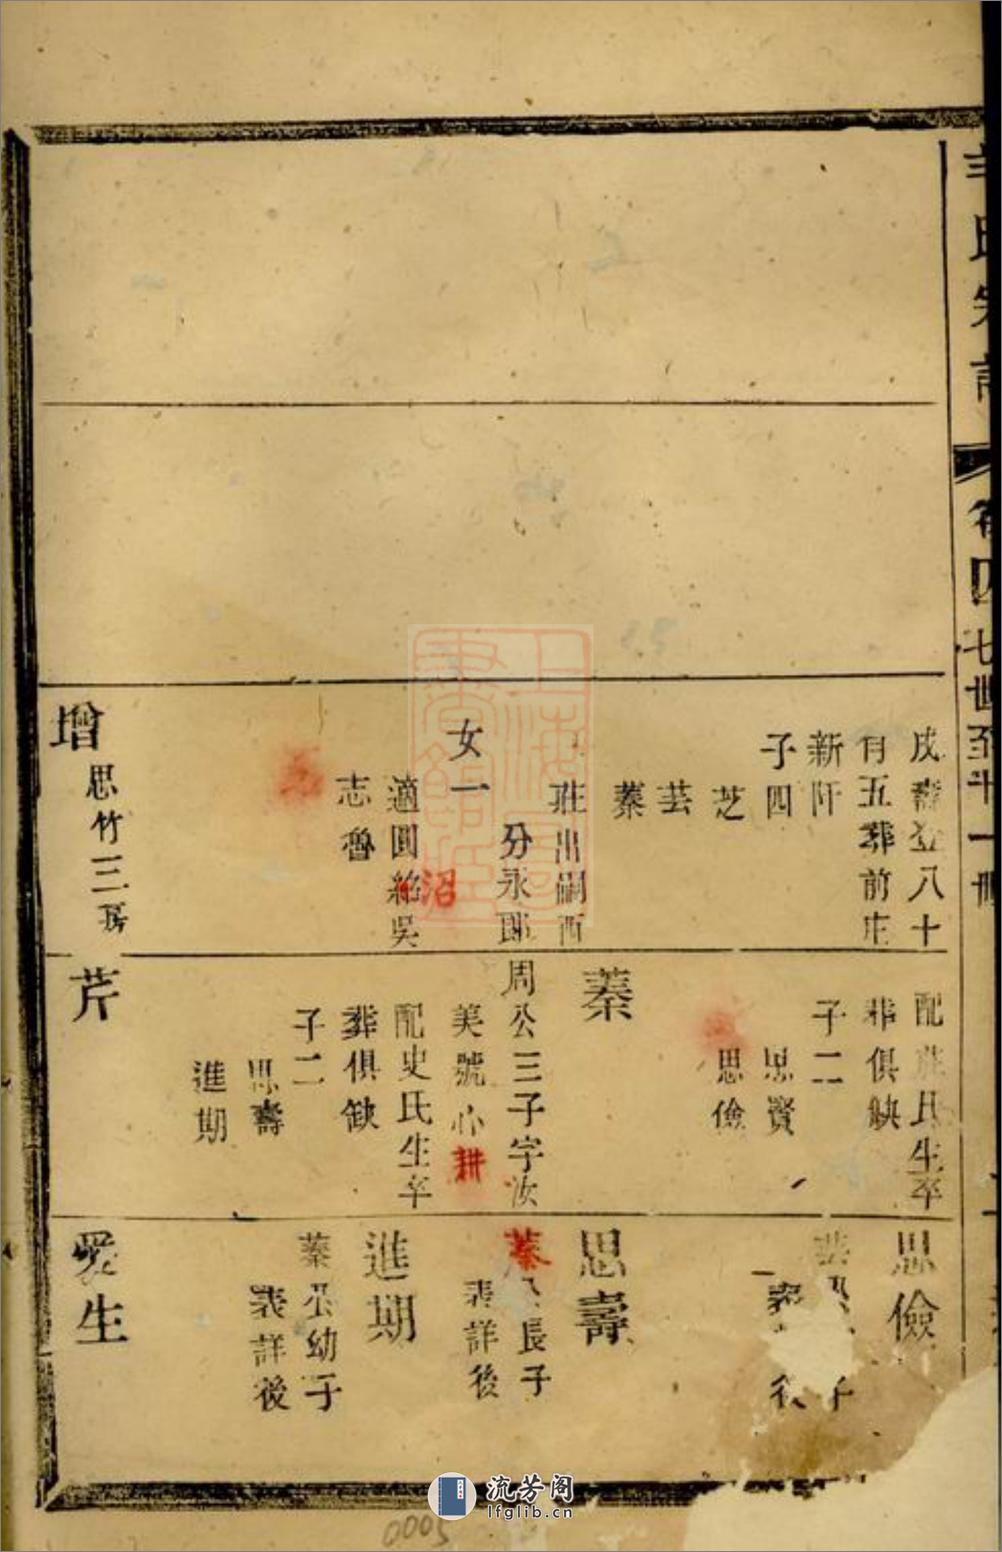 氏宗譜
卷四 七世至十一世
戌壽登八十
有五葬前庄
新阡
子四
芝
芸
蓁
莊出嗣西
分永郎
女一
適圓給吳
沼
志魯
增
思竹三房
配莊氏生卒
葬俱缺
子二
思賓
思儉
蓁
周公三子字汝
美號心耕
配史氏生卒
葬俱缺
子二
思壽
進期
芹
思儉
子
後
思壽
蓁公長子
表詳後
進期
蓁公幼子
表詳後
愛生
流芳阁
lfglib.cn
0005